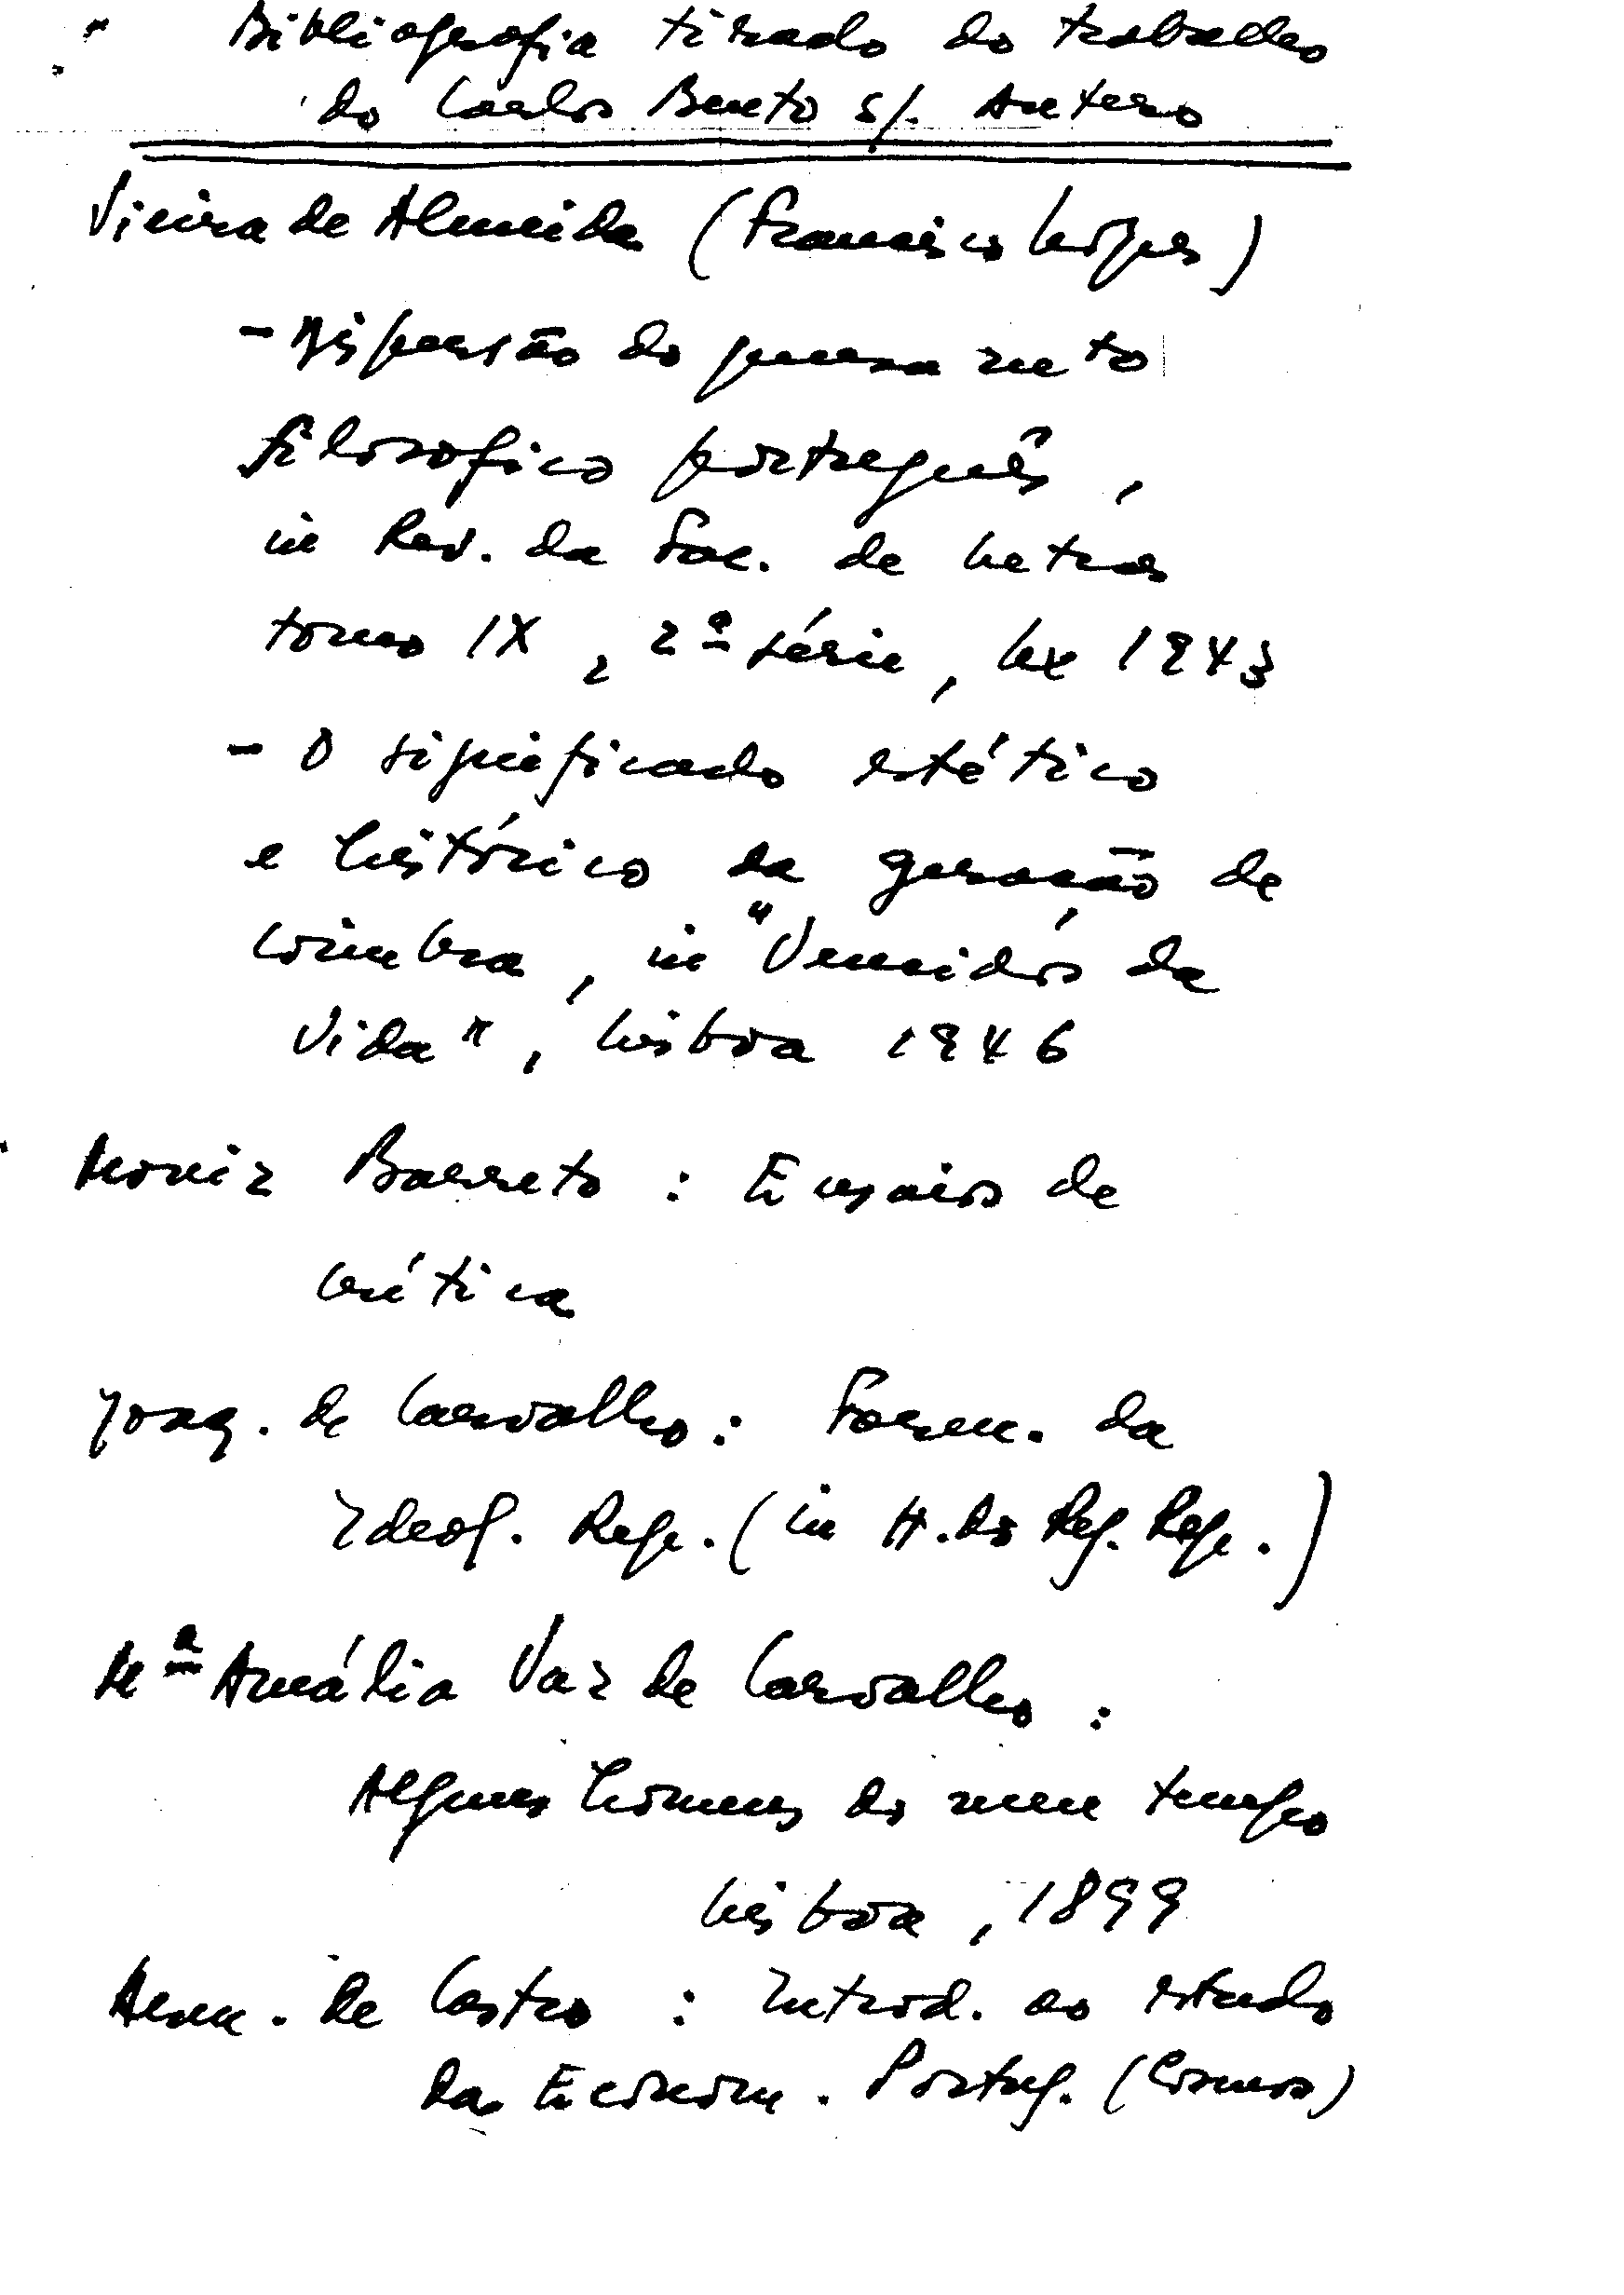 Bibliografia tirado do trabalho
do Carlos Bento s/. Antero
Vieira de Almeida (Francisco Lopes)
- Dispersão do pensamento
filosofico português,
in Rev. da Fac. de Letras
tomo IX, 2ª série, Lx 1943
- O significado estético
e histórico da geração de
Coimbra, in "Vencidos da
Vida", Lisboa 1946
Moniz Barreto : Ensaios de
Crítica
Joaq. de Carvalho : Form. da
Ideol. Rep. (in H. do Reg. Rep.)
Mª Amália Vaz de Carvalho :
Alguns homens do meu tempo
Lisboa, 1899
Arm. de Castro : Introd. ao estudo
da Econom. Portug. (Cosmos)